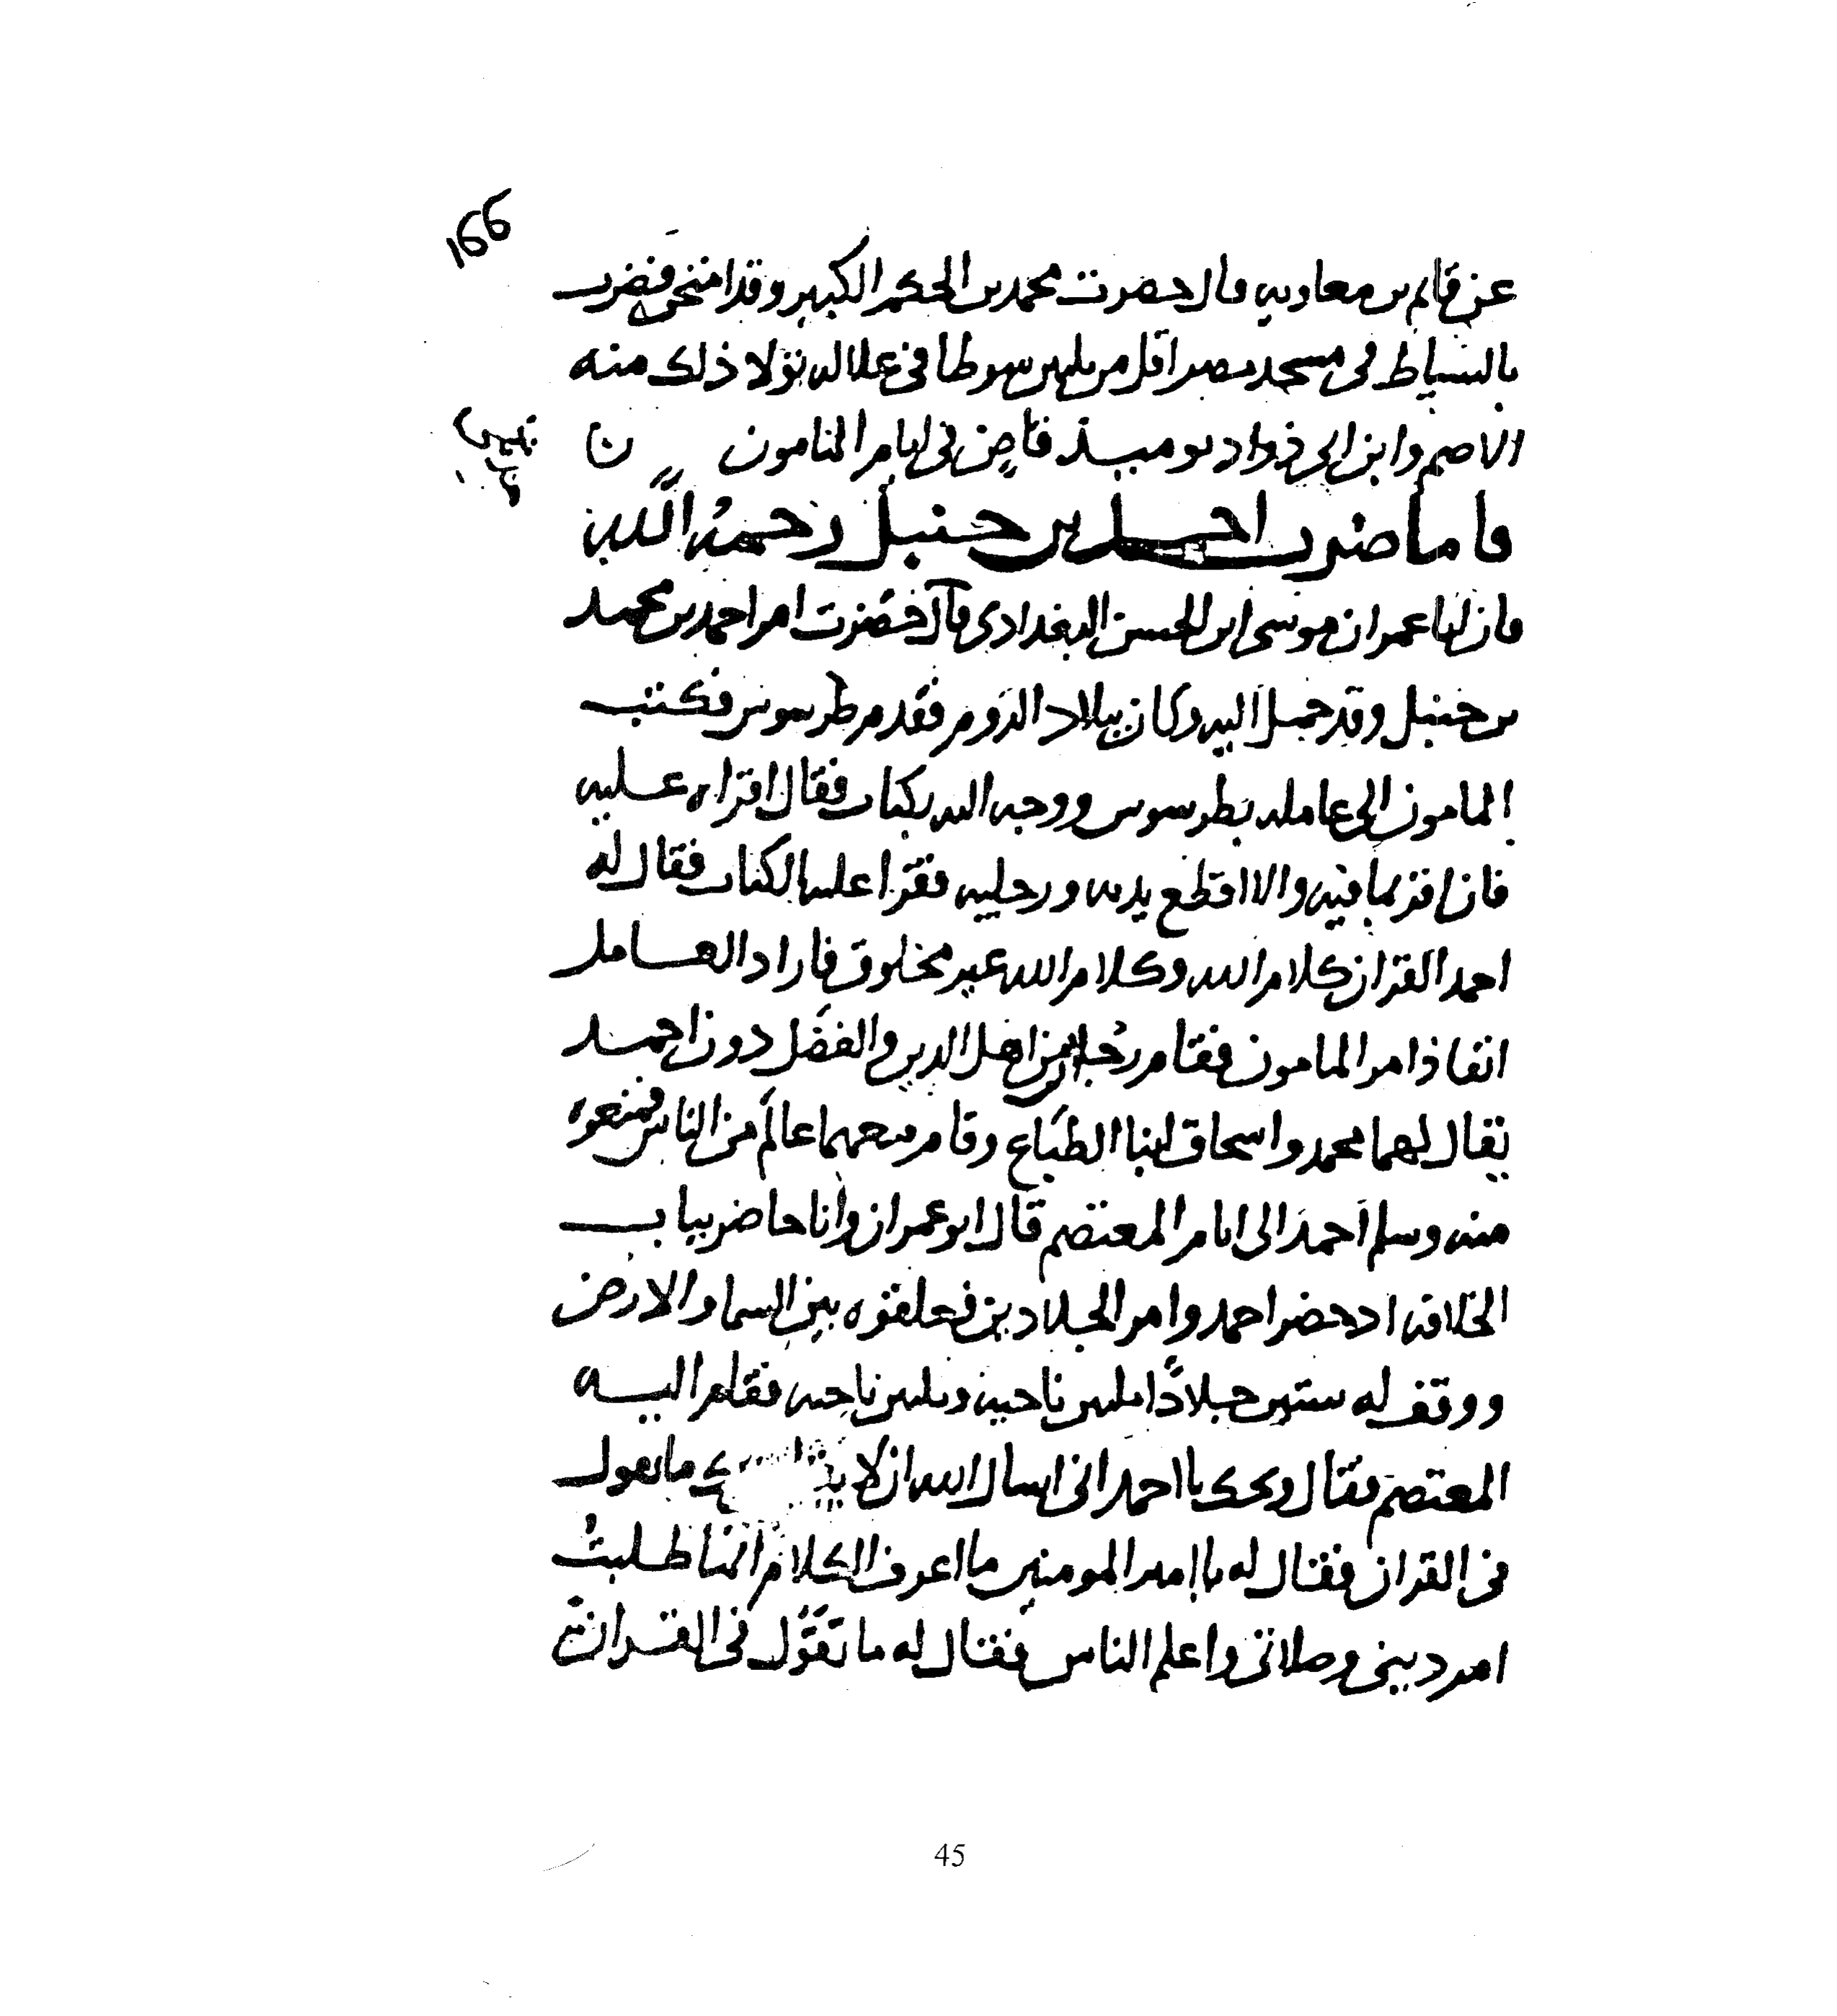 166
عن قاسم بن معاويه قال حضرت محمد بن الحكم الكبير وقد امتحن فضرب
بالسياط في مسجد مصر اقل من ثلثين سوطا في علالله تولا ذلك منه
الاصم وابن ابي دواد يوميذ قاض في ايام المامون
فاما ضرب احمد بن حنبل رحمه الله
فان ابا عمران موسى ابن الحسن البغدادي قال حضرت امر احمد بن محمد
بن حنبل وقد حمل اليه وكان ببلاد الروم فقدم طرسوس فكتب
المامون الى عامله بطرسوس ووجه اليه بكتاب فقال اقراه عليه
فان اقر بما فيه والا اقطع يديه ورجليه فقرا عليه الكتاب فقال له
احمد القران كلام الله وكلام الله غير مخلوق فاراد العامل
انفاذ امر المامون فقام رجلان من اهل الدين والفضل دون احمد
يقال لهما محمد واسحاق ابنا الطباع وقام معهما عالم من الناس فمنعوه
منه وسلم احمد الى ايام المعتصم قال ابو عمران وانا حاضر بباب
الخلافه اد حضر احمد وامر الجلادين فعلقوه بين السما والارض
ووقف له ستين جلادا ثلثين ناحيه وثلثين ناحيه فقام اليه
المعتصم فقال ويحك يا احمد اني اسال الله ان لا ما تقول
في القران فقال له يا امير المومنين ما اعرف الكلام انما طلبت
امر ديني وصلاتي واعلم الناس فقال له ما تقول في القران
45